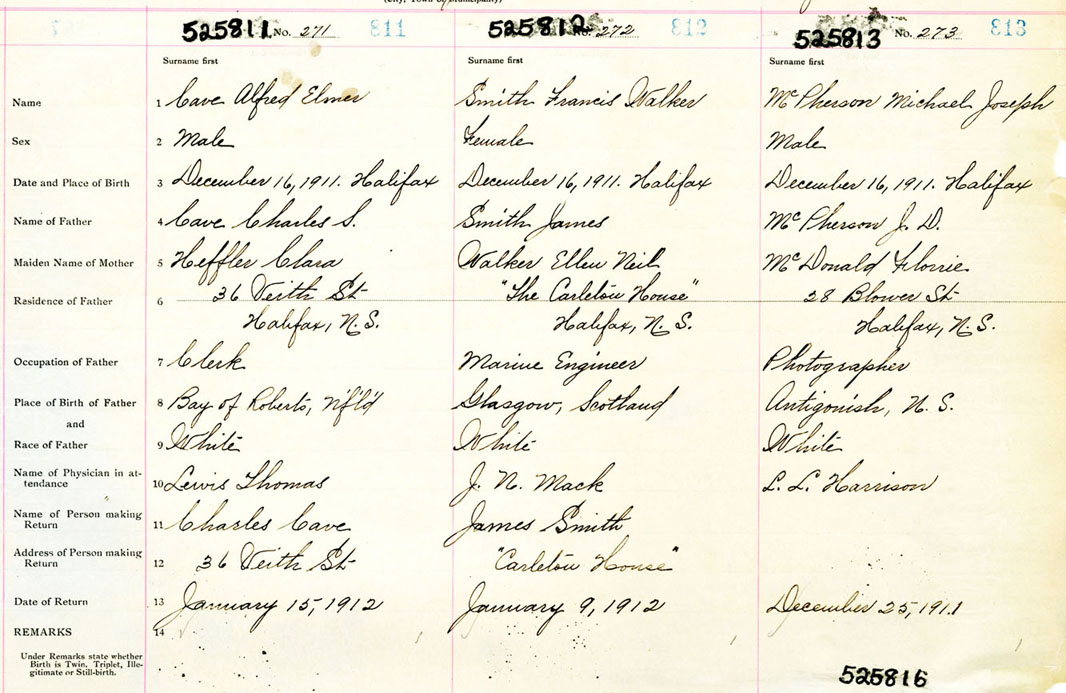 (City, Town or Municipality)
525811 No. 271 811 525812 No. 272 812 525813 No. 273 813
Surname first Surname first Surname first
Name 1 Cave Alfred Elmer Smith Francis Walker McPherson Michael Joseph
Sex 2 Male Female Male
Date and Place of Birth 3 December 16, 1911. Halifax December 16, 1911. Halifax December 16, 1911. Halifax
Name of Father 4 Cave Charles S. Smith James McPherson J. D.
Maiden Name of Mother 5 Heffler Clara Walker Ellen Neil McDonald Florrie
Residence of Father 6 36 Veith St "The Carleton House" 28 Blower St
Halifax, N.S. Halifax, N.S. Halifax, N.S.
Occupation of Father 7 Clerk Marine Engineer Photographer
Place of Birth of Father 8 Bay of Roberts, Nf'l'd Glasgow, Scotland Antigonish, N.S.
and
Race of Father 9 White White White
Name of Physician in at-
tendance 10 Lewis Thomas J. N. Mack L. L. Harrison
Name of Person making
Return 11 Charles Cave James Smith
Address of Person making
Return 12 36 Veith St "Carleton House"
Date of Return 13 January 15, 1912 January 9, 1912 December 25, 1911
REMARKS 14
Under Remarks state whether
Birth is Twin, Triplet, Ille-
gitimate or Still-birth.
525816